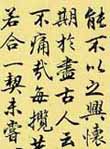 能不以之興懷
期於盡古人云
不痛哉每攬
若合一契未嘗